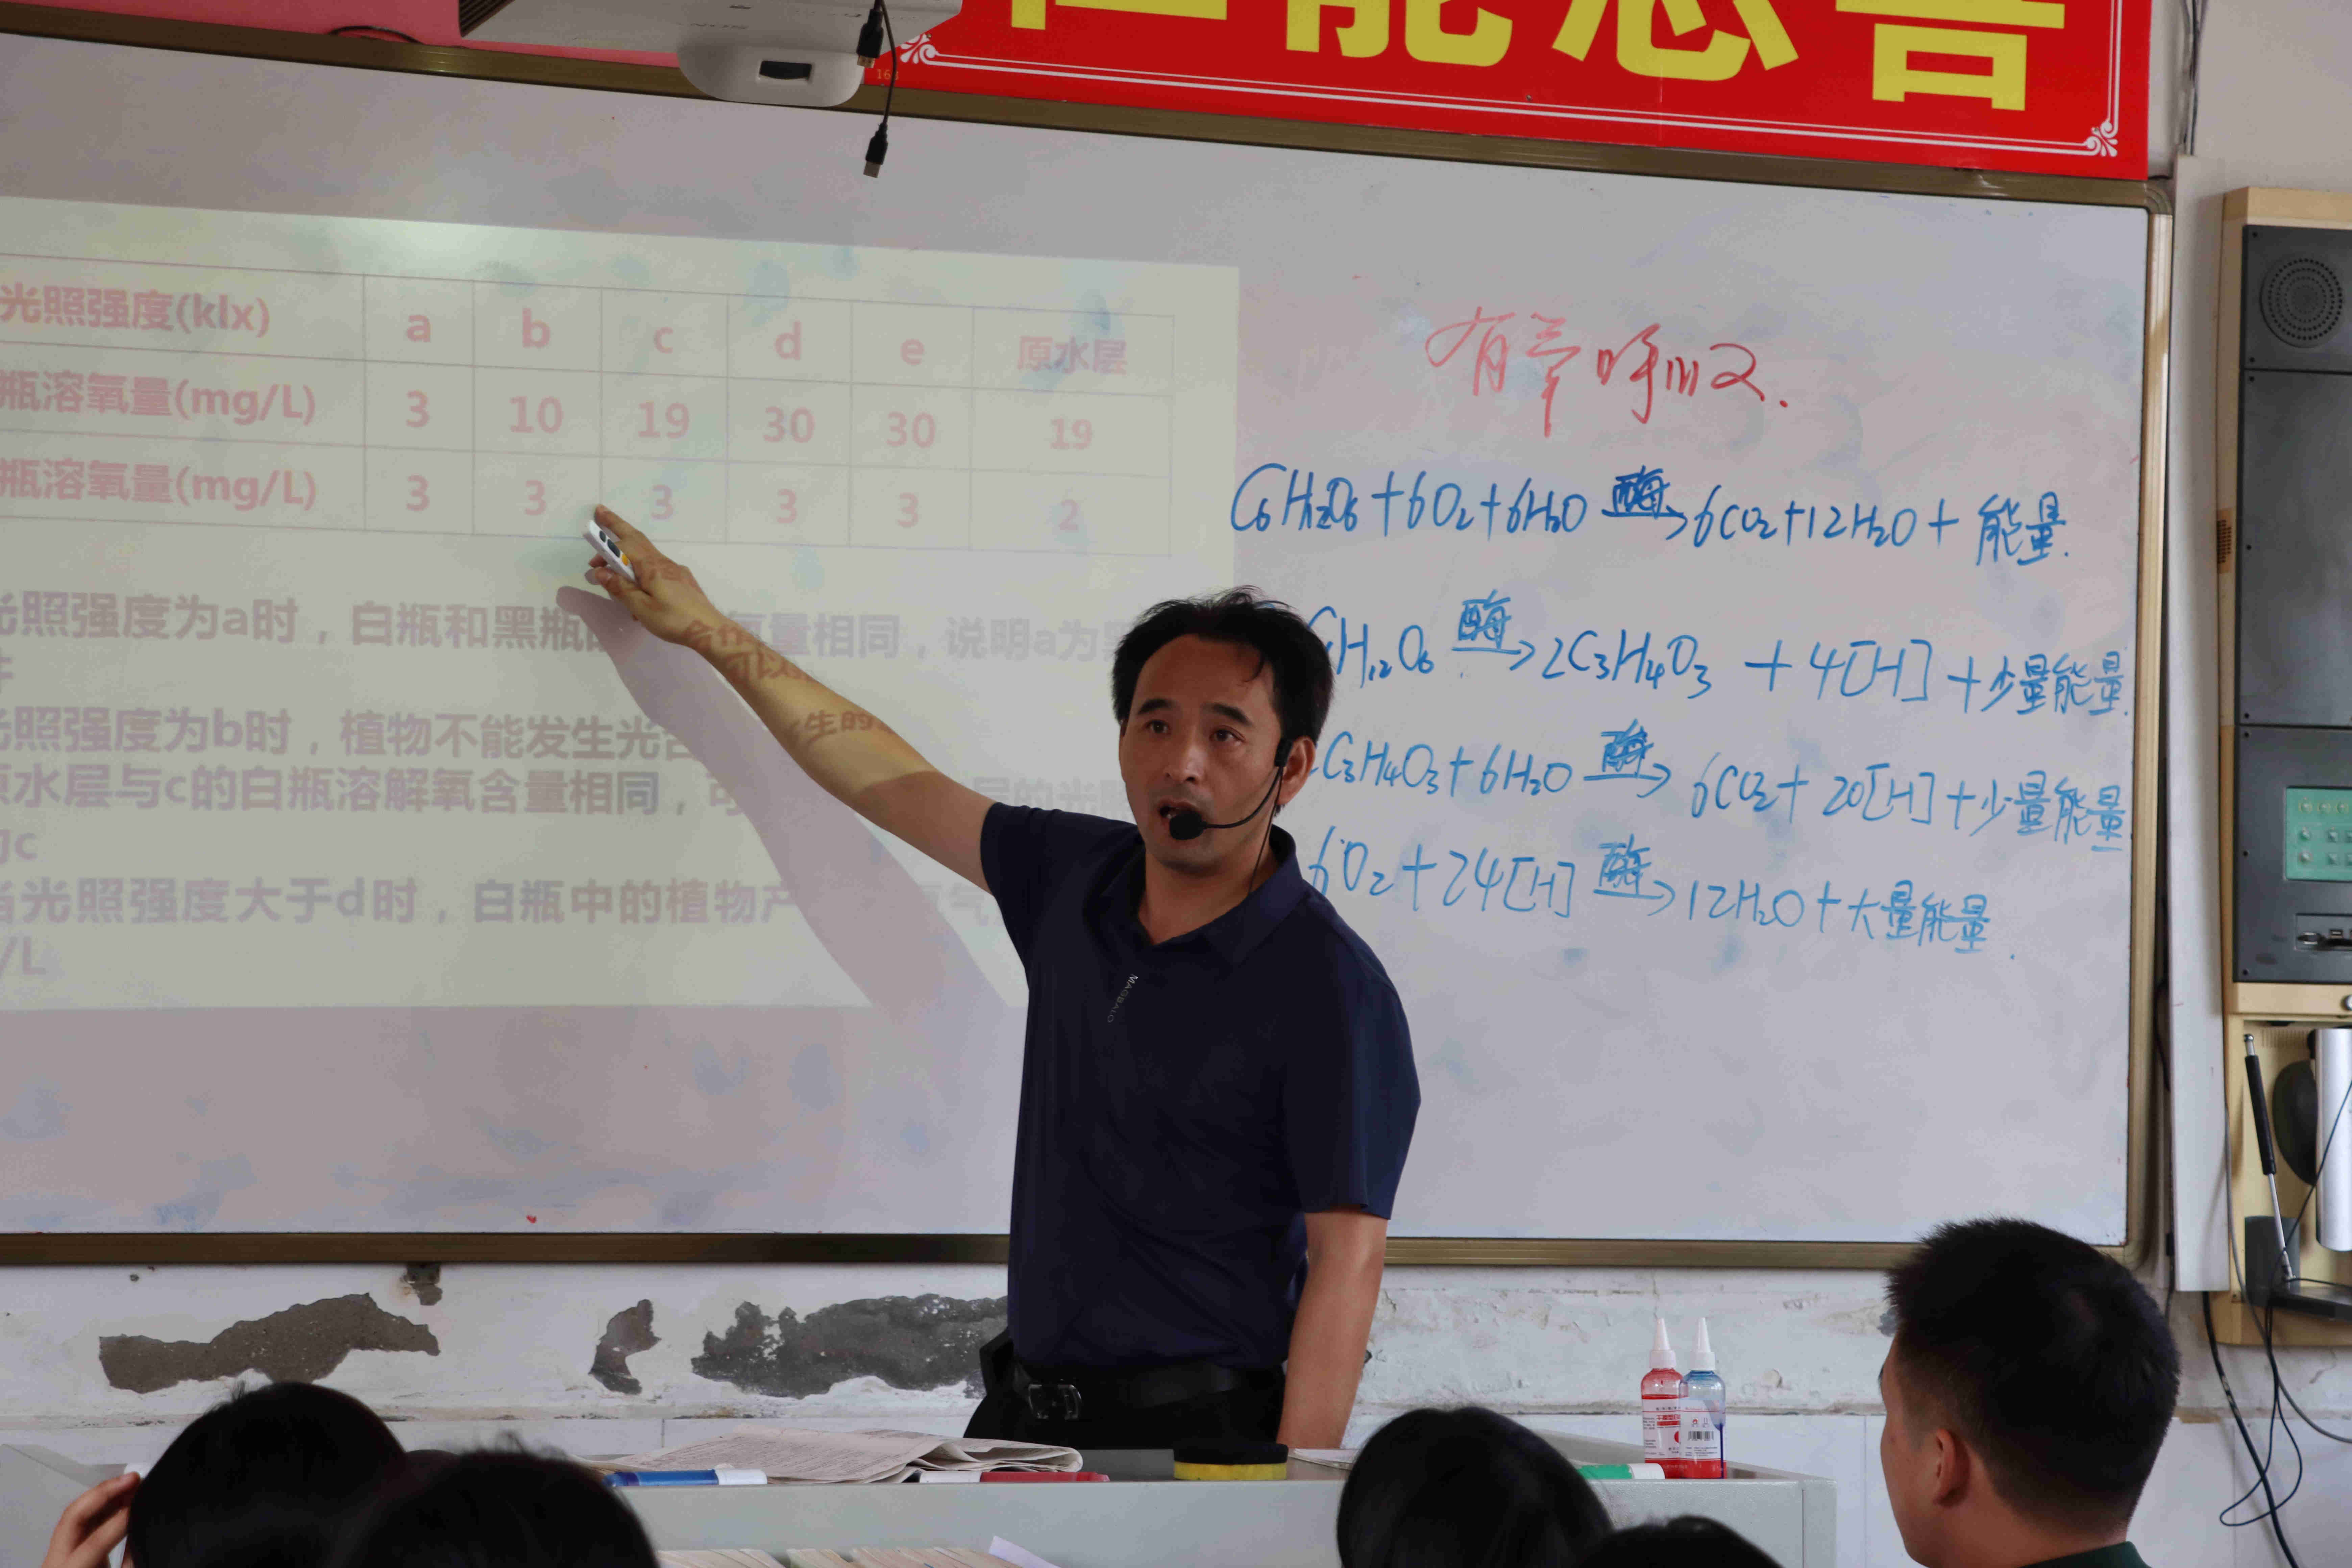 能
善
光照强度(klx) a b c d e 原水层
瓶溶氧量(mg/L) 3 10 19 30 30 19
瓶溶氧量(mg/L) 3 3 3 3 3 2
光照强度为a时，白瓶和黑瓶 量相同，说明a为
光照强度为b时，植物不能发生光 生的
原水层与c的白瓶溶解氧含量相同，可 层的光
c
当光照强度大于d时，白瓶中的植物产 氧气
/L
有氧呼吸.
C₆H₁₂O₆+6O₂+6H₂O 酶→ 6CO₂+12H₂O+能量.
H₁₂O₆ 酶→ 2C₃H₄O₃ + 4[H]+少量能量.
C₃H₄O₃+6H₂O 酶→ 6CO₂+20[H]+少量能量
6O₂+24[H] 酶→ 12H₂O+大量能量.
MAGDALO